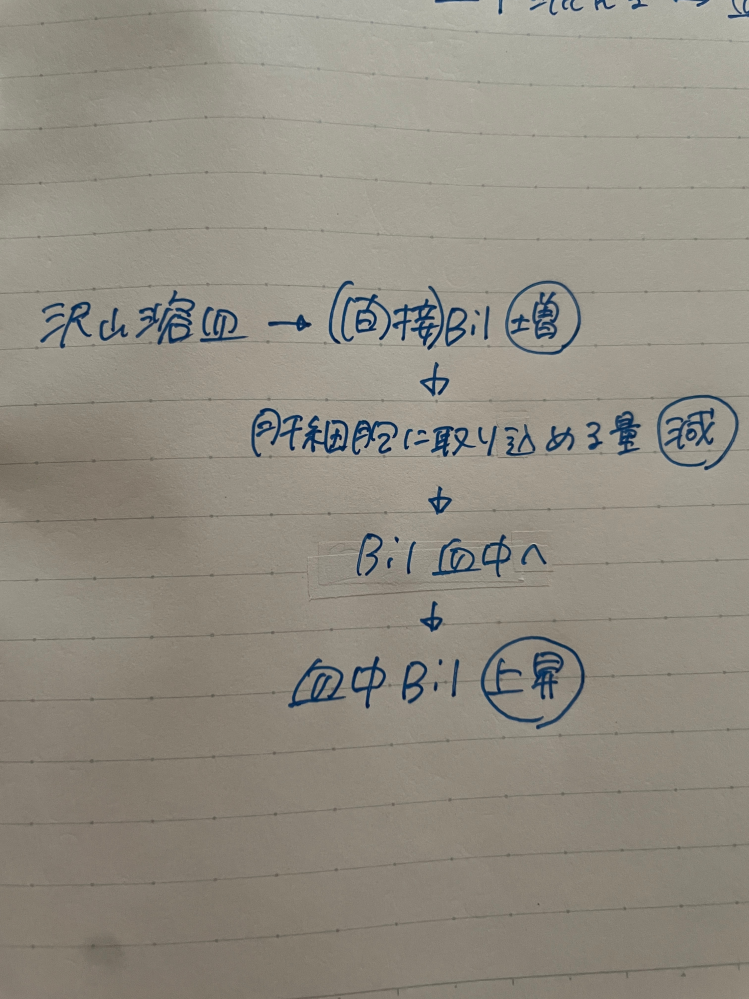 沢山溶血 → (直接)Bil 増
↓
肝細胞に取り込める量 減
↓
Bil 血中へ
↓
血中Bil 上昇